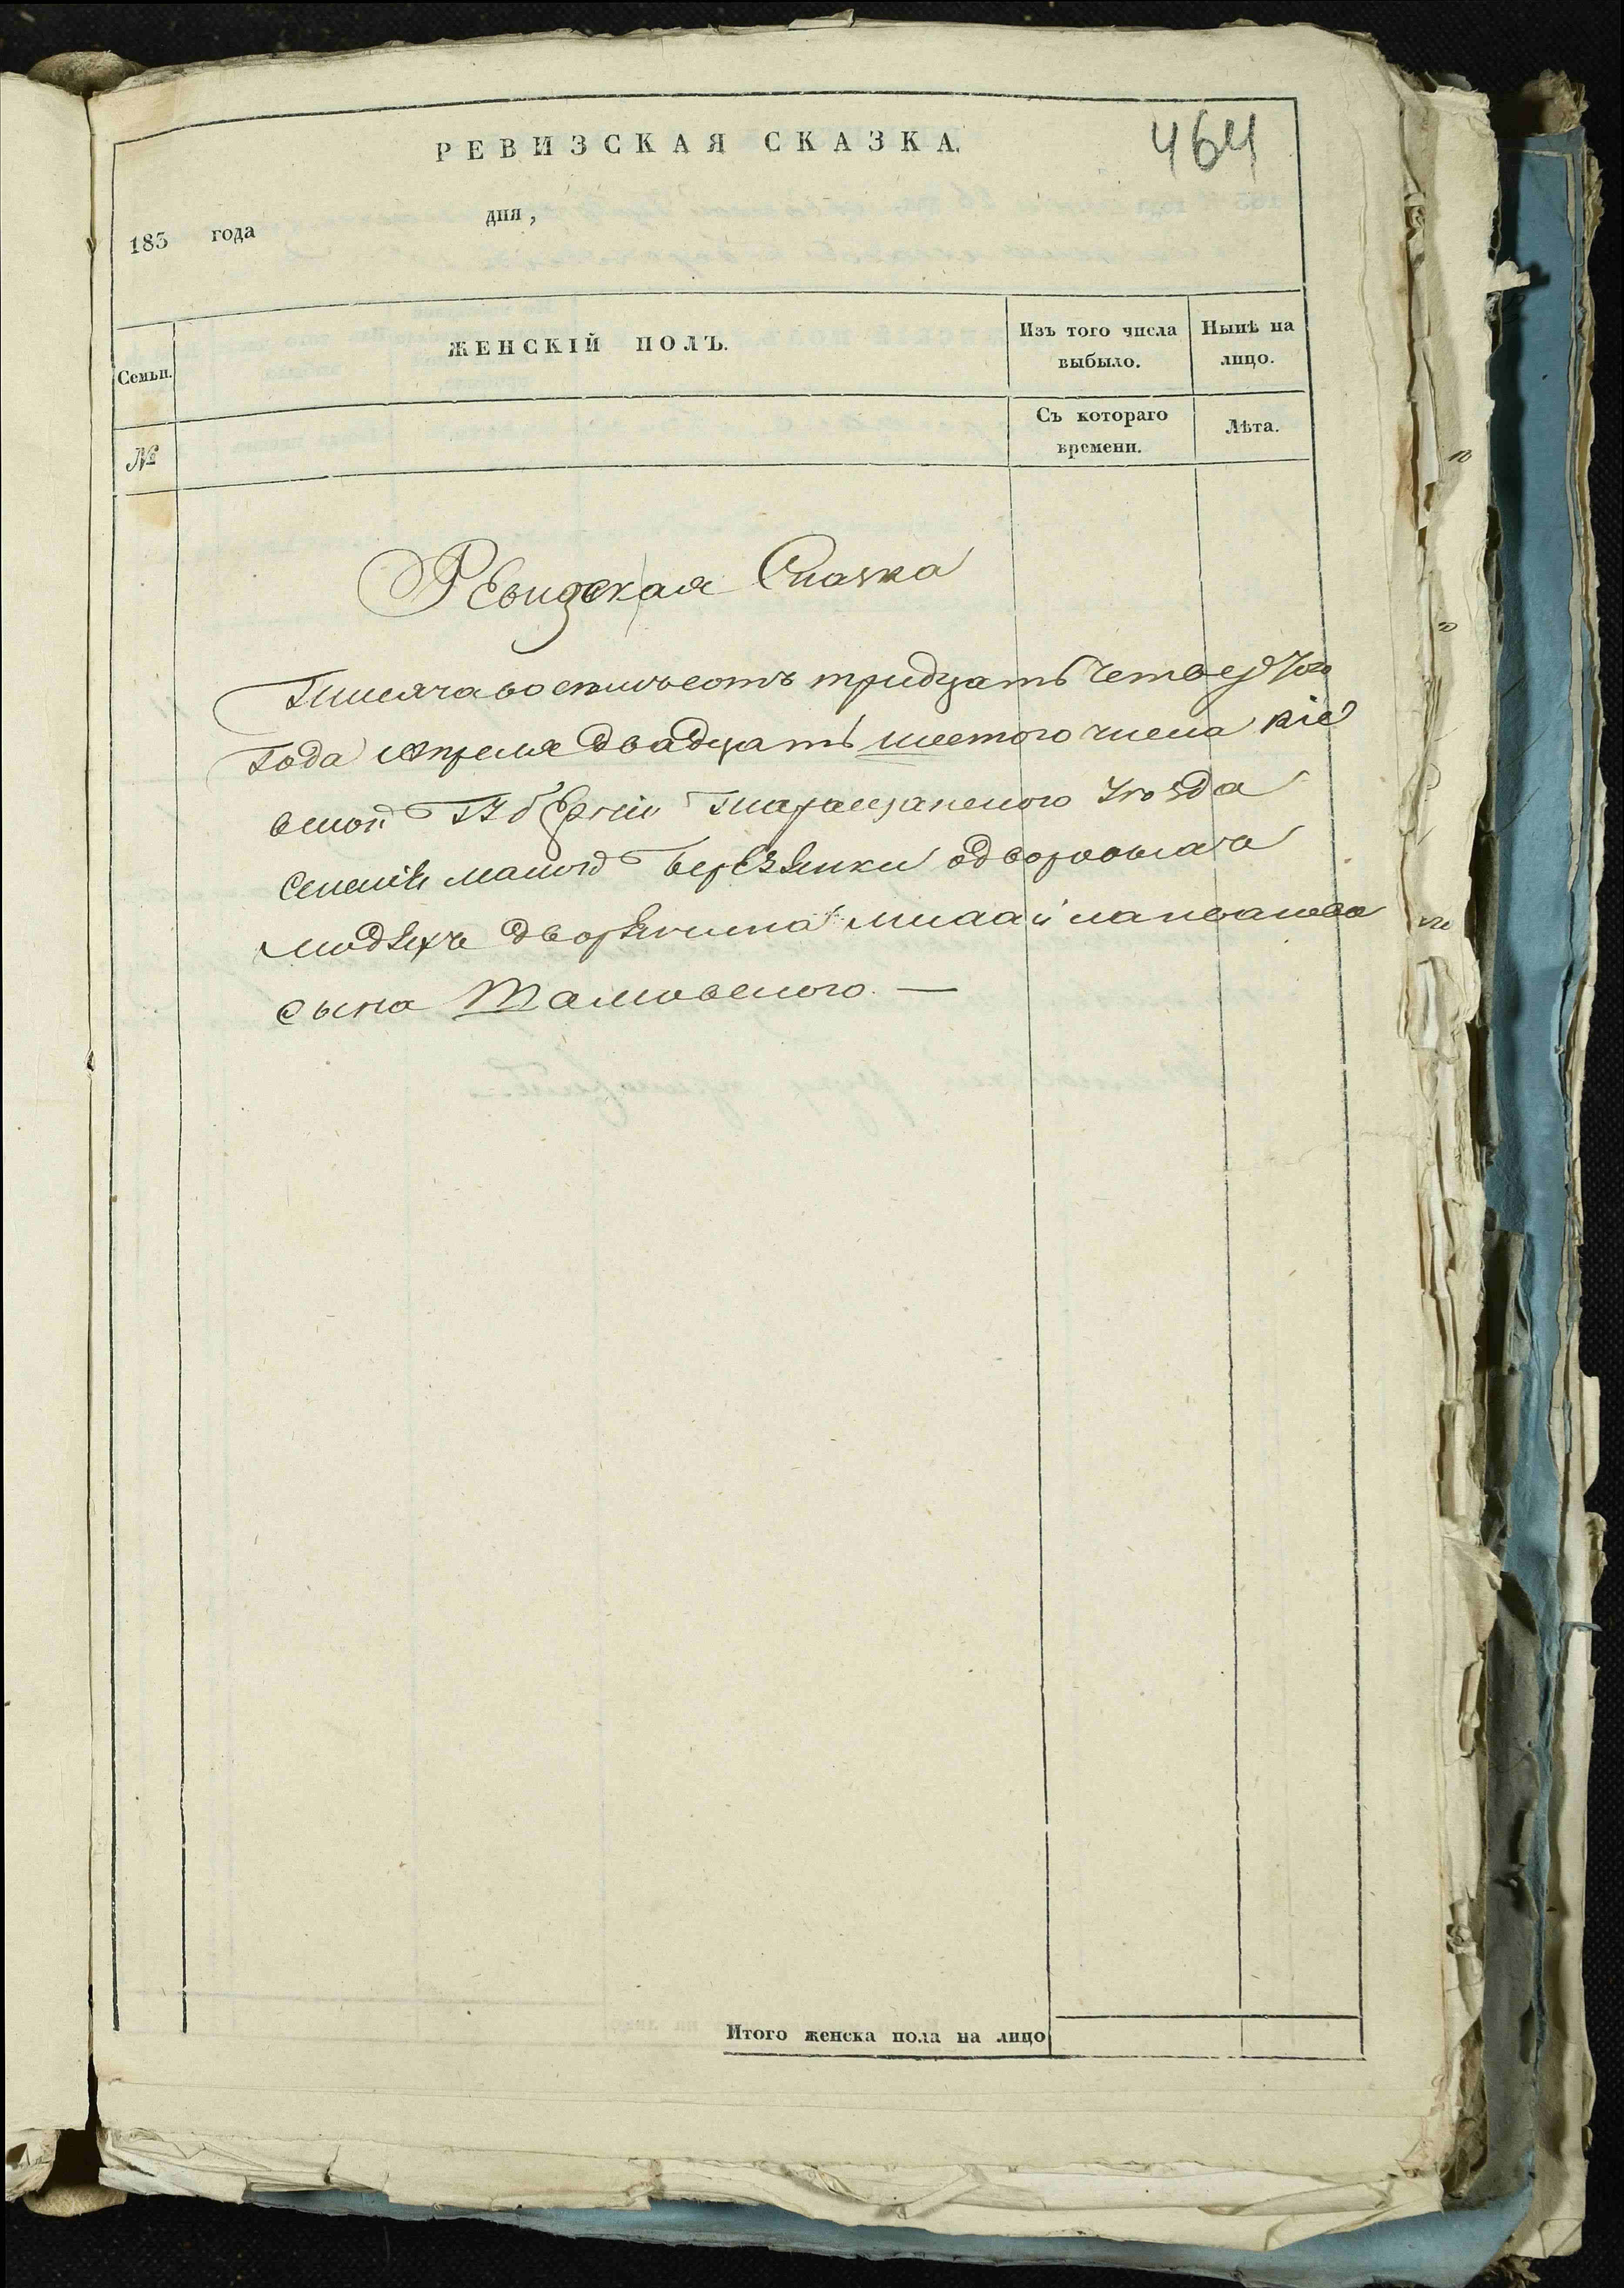 РЕВИЗСКАЯ СКАЗКА.
464
183 года дня,
Семьи.
ЖЕНСКІЙ ПОЛЪ.
Изъ того числа выбыло.
Нынѣ на лицо.
№
Съ котораго времени.
Лѣта.
Ревизская Сказка
Тисяча восимъсотъ тридцать четвертого
Года апреля двадцать шестого числа Кіе
вской Губерніи Таращанского Уѣзда
селенія малой Березянки одворовыхъ
людяхъ дворянина
сына
Итого женска пола на лицо